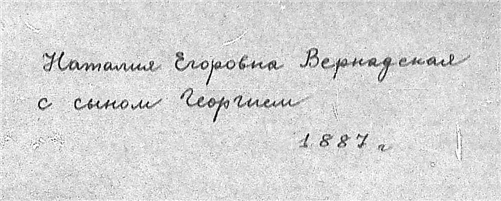 Наталия Егоровна Вернадская
с сыном Георгием
1887 г